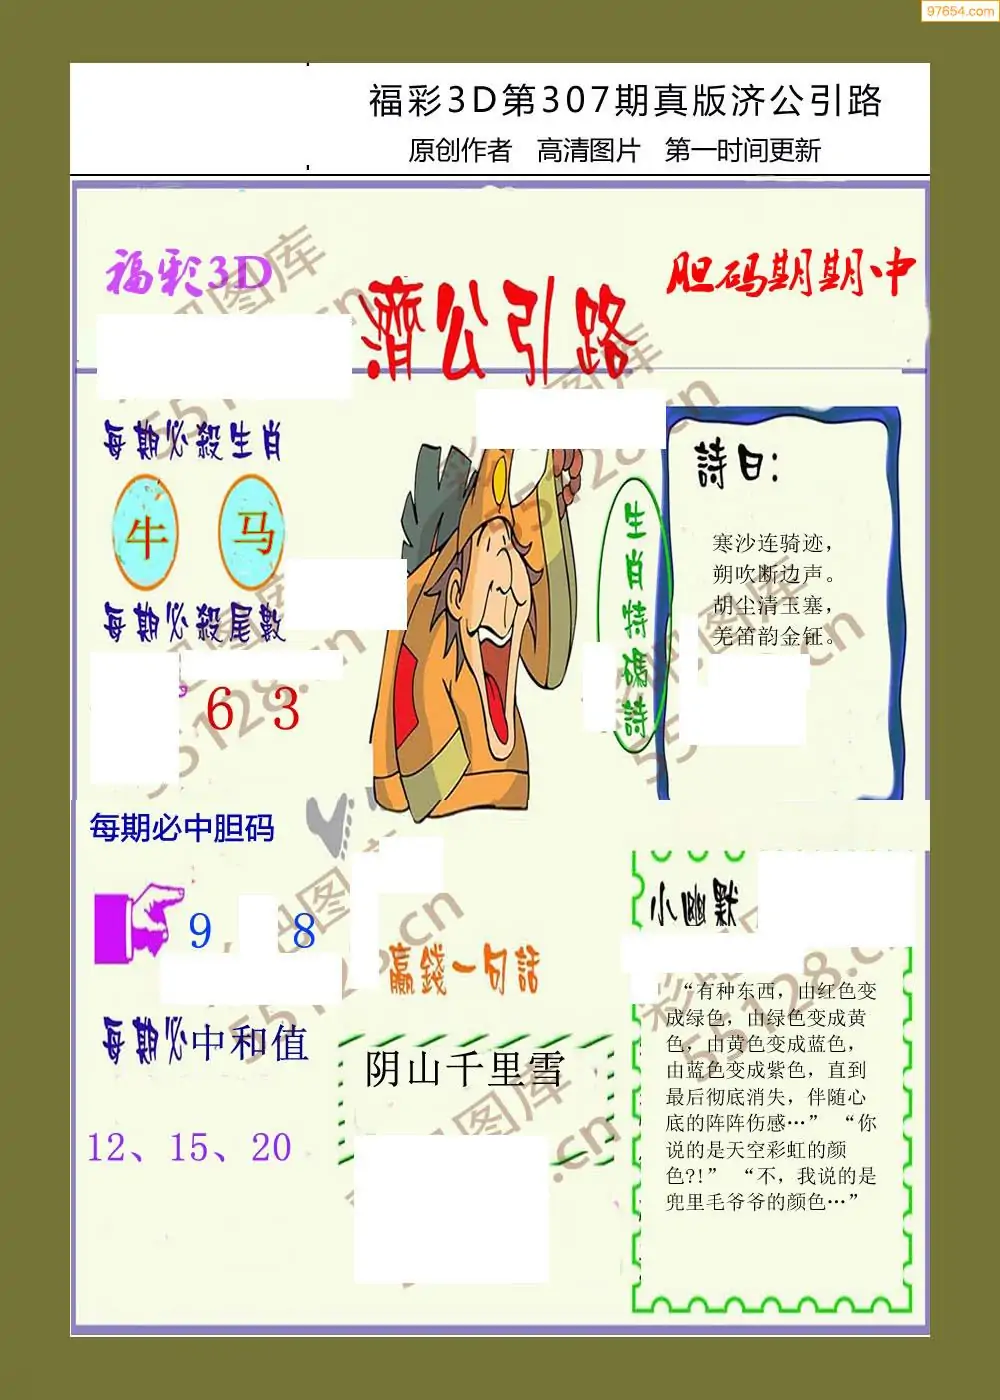 97654.com
福彩3D第307期真版济公引路
原创作者 高清图片 第一时间更新
福彩3D
濟公引路
胆码期期中
每期必殺生肖
牛 马
每期必殺尾數
6 3
生肖特碼詩
詩曰：
寒沙连骑迹，
朔吹断边声。
胡尘清玉塞，
羌笛韵金钲。
每期必中胆码
9 8
每期必中和值
12、15、20
赢錢一句話
阴山千里雪
小幽默
“有种东西，由红色变
成绿色，由绿色变成黄
色，由黄色变成蓝色，
由蓝色变成紫色，直到
最后彻底消失，伴随心
底的阵阵伤感…” “你
说的是天空彩虹的颜
色?!” “不，我说的是
兜里毛爷爷的颜色…”
彩图库
55128.cn